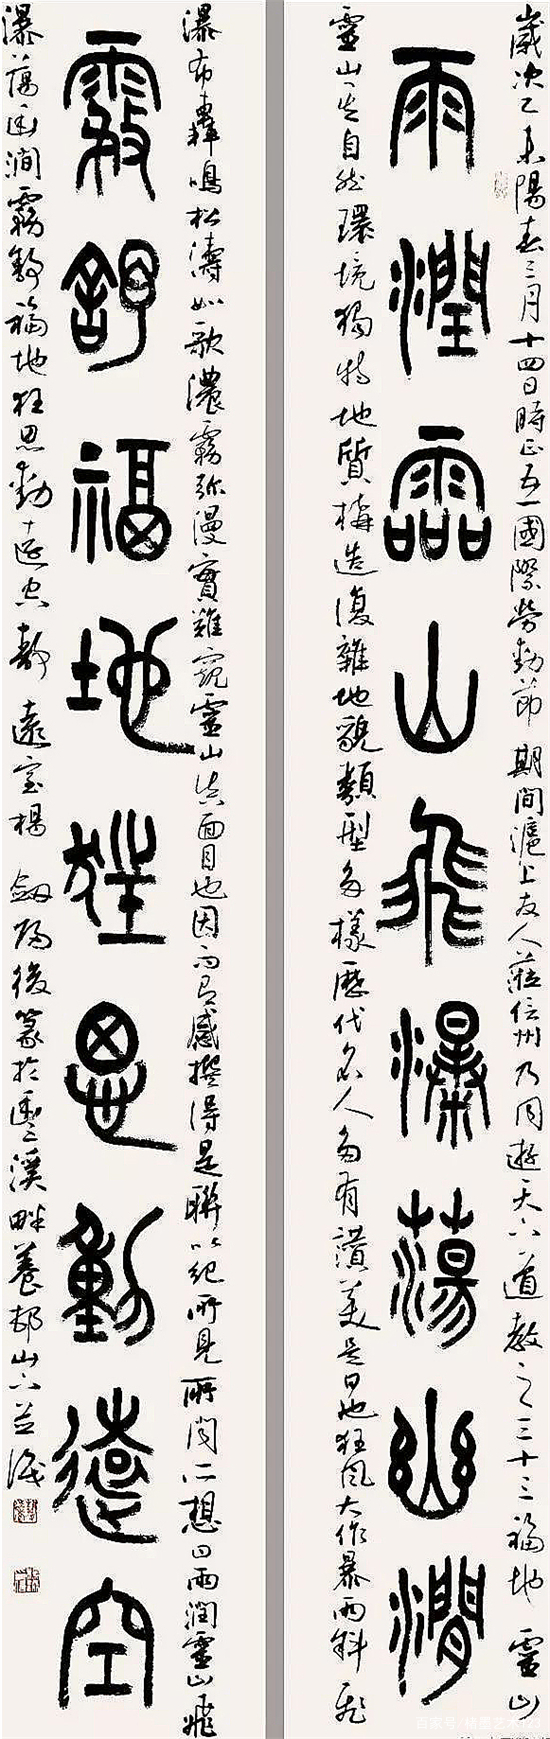 歲次乙未陽春三月十四日時正五一國際勞動節期間滬上友人蒞信州乃同遊天下道教之三十三福地靈山
雨潤靈山飛瀑蕩幽澗
靈山其自然環境獨特地質構造復雜地貌類型多樣歷代名人多有讚美是日也狂風大作暴雨斜飛
瀑布轟鳴松濤如歌濃霧弥漫實難窺靈山真面目也因而有感撰得是聯以紀所見所聞所想曰雨潤靈山飛
霧舒福地狂思動遠空
瀑蕩幽澗霧舒福地狂思動遠空静遠室楊劍後篆於溪畔養邨山下並識